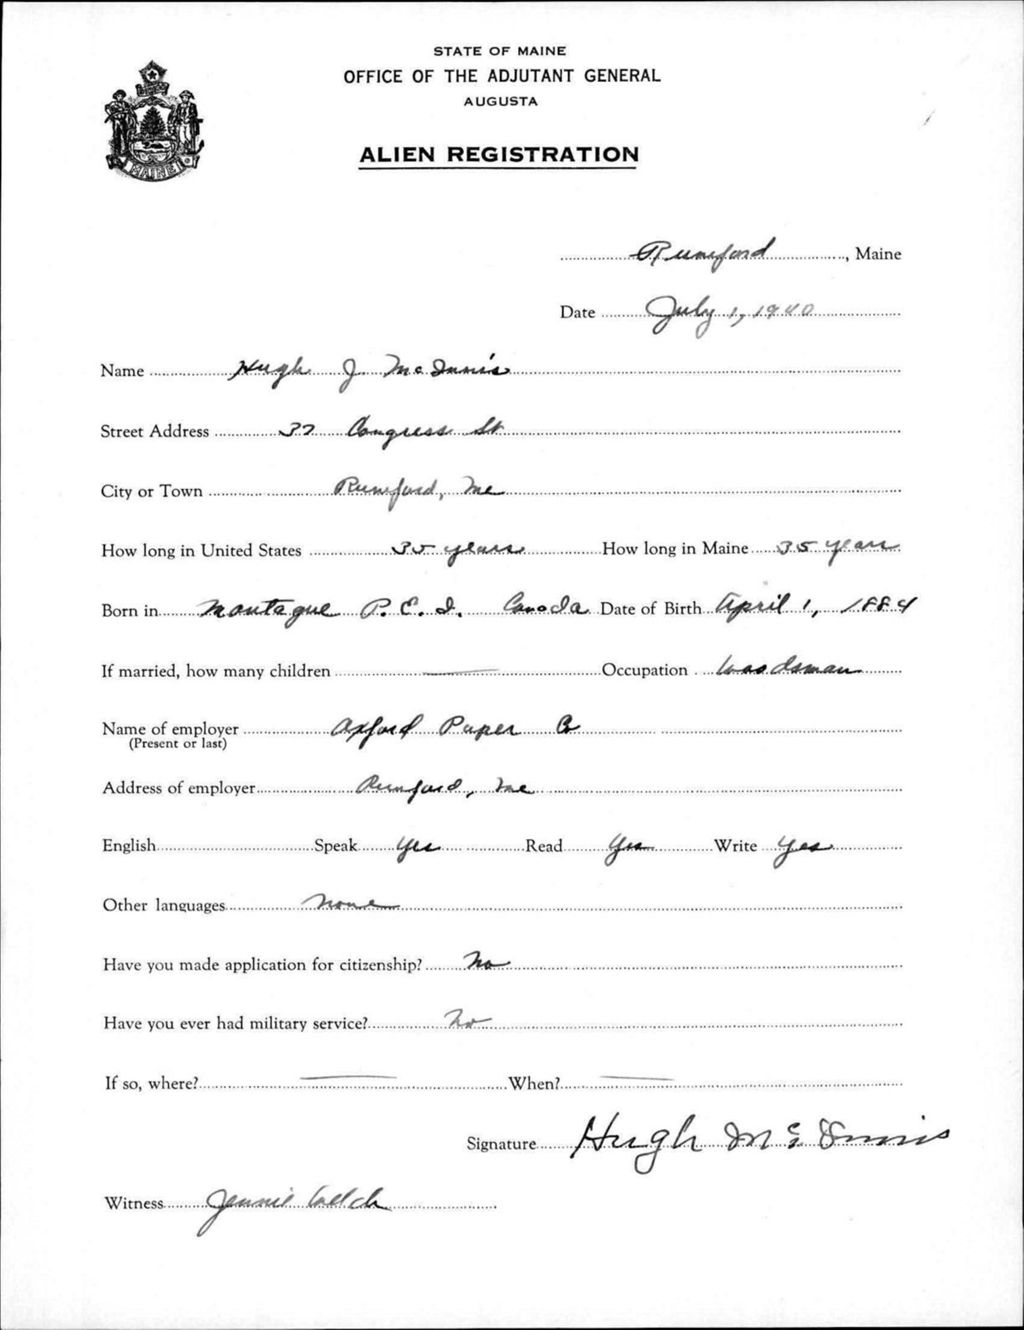 STATE OF MAINE
OFFICE OF THE ADJUTANT GENERAL
AUGUSTA
MAINE
ALIEN REGISTRATION
Rumford, Maine
Date July 1, 1940
Name Hugh J McInnis
Street Address 37 Congress St
City or Town Rumford, Me
How long in United States 35 years How long in Maine 35 years
Born in Montague P.E.I. Canada Date of Birth April 1, 1884
If married, how many children — Occupation Woodsman
Name of employer Oxford Paper Co
(Present or last)
Address of employer Rumford, Me
English Speak Yes Read Yes Write Yes
Other languages None
Have you made application for citizenship? No
Have you ever had military service? No
If so, where? — When? —
Signature Hugh McInnis
Witness Jennie Welch